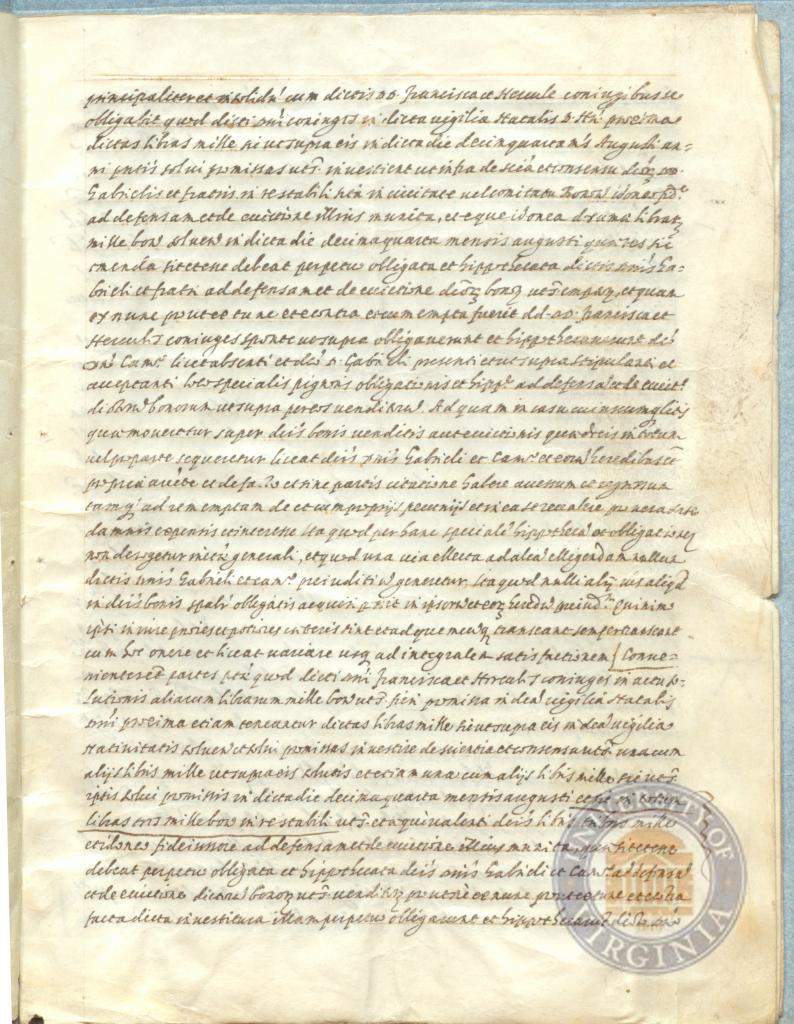 principaliter et insolidũ cum dictis DD. Francisca et Hercule coniugibus se
obligabit quod dicti DNI coniuges in dicta vigilia Natalis D. Nri proxima
dictas libras mille sic ut supra eis in dicta die decimaquarta ms Augusti an=
ni pntis solui promissas uts. investient ut infra de scia et consensu
Gabrielis et fratris in re stabili sita in civitate vel comitatu Bonon idonea
ad defensam et de evictione illius munita, et eque idonea d summa librarz
mille bon solven in dicta die decimaquarta mensis augusti quæ res sic
emenda sit et esse debeat perpetuo obligata et hippothecata dictis DNIS Ga=
brieli et fratri ad defensam et de evictione dictoz bonoz uts empt, et quam
ex nunc prout ex tunc et econtra et cum empta fuerit DD. Francisca et
Hercules coniuges sponte ut supra obligaverunt et hippothecaverunt dco
DNO Cam.º licet absenti et dco D. Gabrieli presenti et ut supra stipulanti et
acceptanti loco specialis pignoris obligationis et hipp.ᵉ ad defensa et de evict.ᵉ
dictorũ bonorum ut supra per eos venditorũ. Ad quam in casu cuiuscumq litis
quæ moveretur super dictis bonis venditis aut evictionis quæ de eis in totum
vel pro parte sequeretur liceat dictis DNIS Gabrieli et Cam.º et eorũ heredibus ex
propria aucte et de fa.to et sine partis citatione habere
tamq ad rem emptam de et cum proprijs pecunijs et in ea se
damnis expensis et interesse Ita quod per hanc speciale hippothecã et obligationez
non derogetur generali, et quod una via electa ad aliã elligendam nullum
dictis DNIS Gabrieli et Cam.º preiuditiũ generetur, Ita quod nulli alij ius aliqd
in dictis bonis spalr obligatis acquiri possit in ipsorũ et eoz heredũ preiud.ᵐ Quinimo
ipsi in iure priores et potiores ceteris sint et ad quemcunq transeant semper transeant
cum hoc onere et liceat variare usq ad integralem satisfactionem / Conve=
nientes partes quod dicti DNI Francisca et Hercules coniuges in actu so=
lutionis aliarum librarum mille bon uts. fieri promissa in dca vigilia Natalis
DNI proxima etiam teneantur dictas libras mille sic ut supra eis in dca vigilia
Nativitatis solven et solui promissas investire de scientia et consensu uts. una cum
alijs libris mille ut supra eis solutis et etiam una cum alijs libris mille sic uts
ipsis solui promissis in dicta die decimaquarta mensis augusti et sic in totum
libras tres mille bon in re stabili uts. et æquivalenti dictis libris tribus mille
et idoneo fideiussore ad defensam et de evictione illius munita, quæ sit et esse
debeat perpetuo obligata et hippothecata dictis DNIS Gabrieli et Cam.º ad defensã
et de evictione dictorũ bonoz uts. venditoz prout ex nunc prout ex tunc et econtra
facta dicta investitura illam perpetuo obligarunt et hippothecarunt dictis DNIS
UNIVERSITY OF VIRGINIA